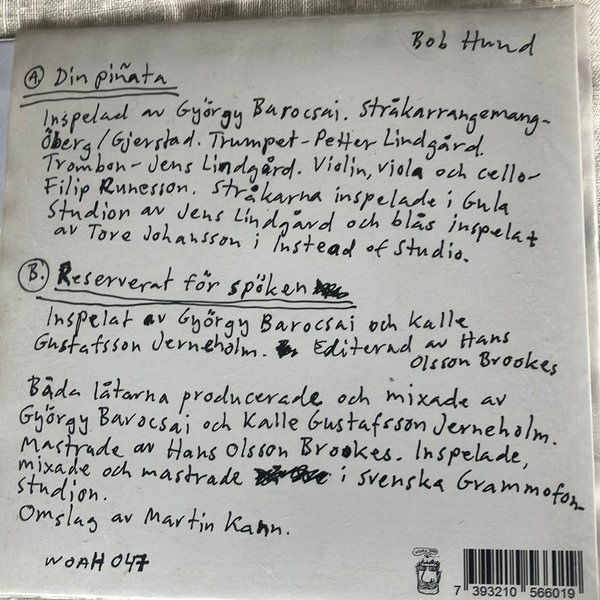 Bob Hund
A. Din piñata
Inspelad av György Barocsai. Stråkarrangemang-
Öberg/Gjerstad. Trumpet-Petter Lindgård.
Trombon-Jens Lindgård. Violin, viola och cello-
Filip Runesson. Stråkarna inspelade i Gula
Studion av Jens Lindgård och blås inspelat
av Tore Johansson i Instead of Studio.
B. Reserverat för spöken
Inspelat av György Barocsai och Kalle
Gustafsson Jerneholm. Editerad av Hans
Olsson Brookes
Båda låtarna producerade och mixade av
György Barocsai och Kalle Gustafsson Jerneholm.
Mastrade av Hans Olsson Brookes. Inspelade,
mixade och mastrade i Svenska Grammofon-
studion.
Omslag av Martin Kann.
WOAH 047
7 393210 566019